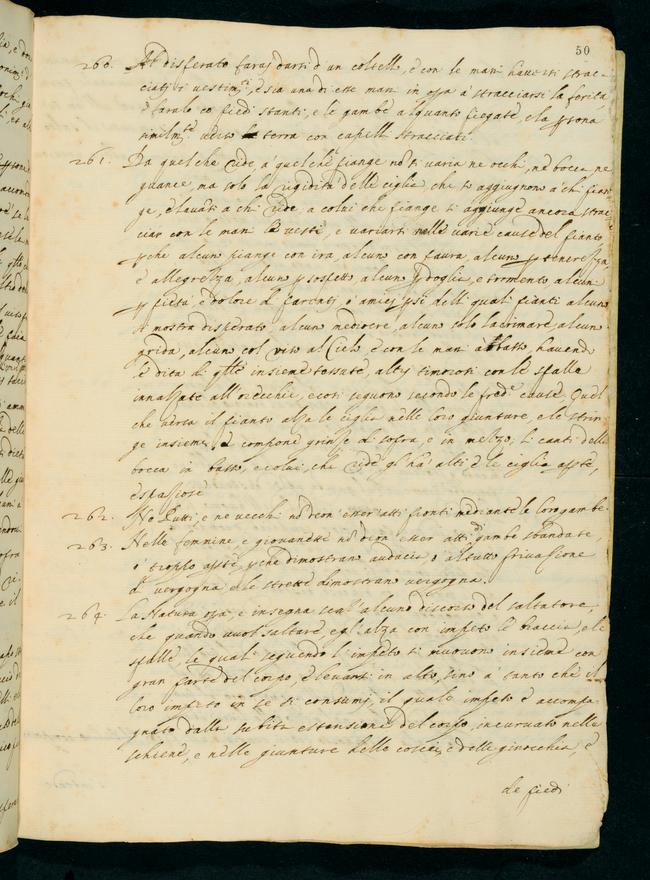 50
260. Al disperato farai darsi d'un coltell, e con le mani haversi strac-
ciati i vestim.ti, e sia una di esse man in opa à stracciarsi la ferita
e farale co piedi stanti, e le gambe alquanto piegate, e la psona
similm.te verso terra con capelli stracciati.
261. Da quel che ride, a quel che piange nō si varia ne occhi, ne bocca, ne
guance, ma solo la rigidità delle ciglia, che s'aggiugnono à chi pian-
ge, e levansi a chi ride, a colui che piange si aggiunge ancora strac-
ciar con le mani le vesti, e variarsi nelle varie cause del pianto
pche alcun piange con ira, alcun con paura, alcun p tenerezza,
e allegrezza, alcun p sospetto, alcun p doglia, e tormento, alcun
p pietà, e dolore di parenti, ò amici psi, delli quali pianti alcun
si mostra disperato, alcun mediocre, alcun solo lacrimare, alcun
grida, alcun col viso al Cielo, e con le mani à basso, havendo
le dita di qlle insieme tessute, altri timorosi con le spalle
innalzate all'orecchie, e così seguono secondo le pred.e cause. Quel
che versa il pianto alza le ciglia nelle loro giunture, e le strin-
ge insieme, e compone grinze di sopra, e in mezzo, li canti della
bocca in basso, e colui, che ride gl'hà alti, e le ciglia apte,
e spaziose
262. Ne Putti, e ne vecchi nō deon esser atti pronti mediante le loro gambe.
263. Nelle femmine, e giovanetti nō deon esser atti di gambe sbandate,
ò troppo apte, pche dimostrano audacia, ò al tutto privazione
di vergogna, e le strette dimostran vergogna.
264. La Natura opa, e insegna senz'alcuno discorso del saltatore,
che quando vuol saltare, egl'alza con impeto le braccia, e le
spalle, le quali seguendo l'impeto si muovono insieme con
gran parte del corpo, e levansi in alto, sino à tanto che il
loro impeto in se si consumi, il quale impeto è accompa-
gnato dalla subita estensione del corpo, incurvato nella
schiena, e nelle giunture delle coscie, e delle ginocchia, e
de piedi